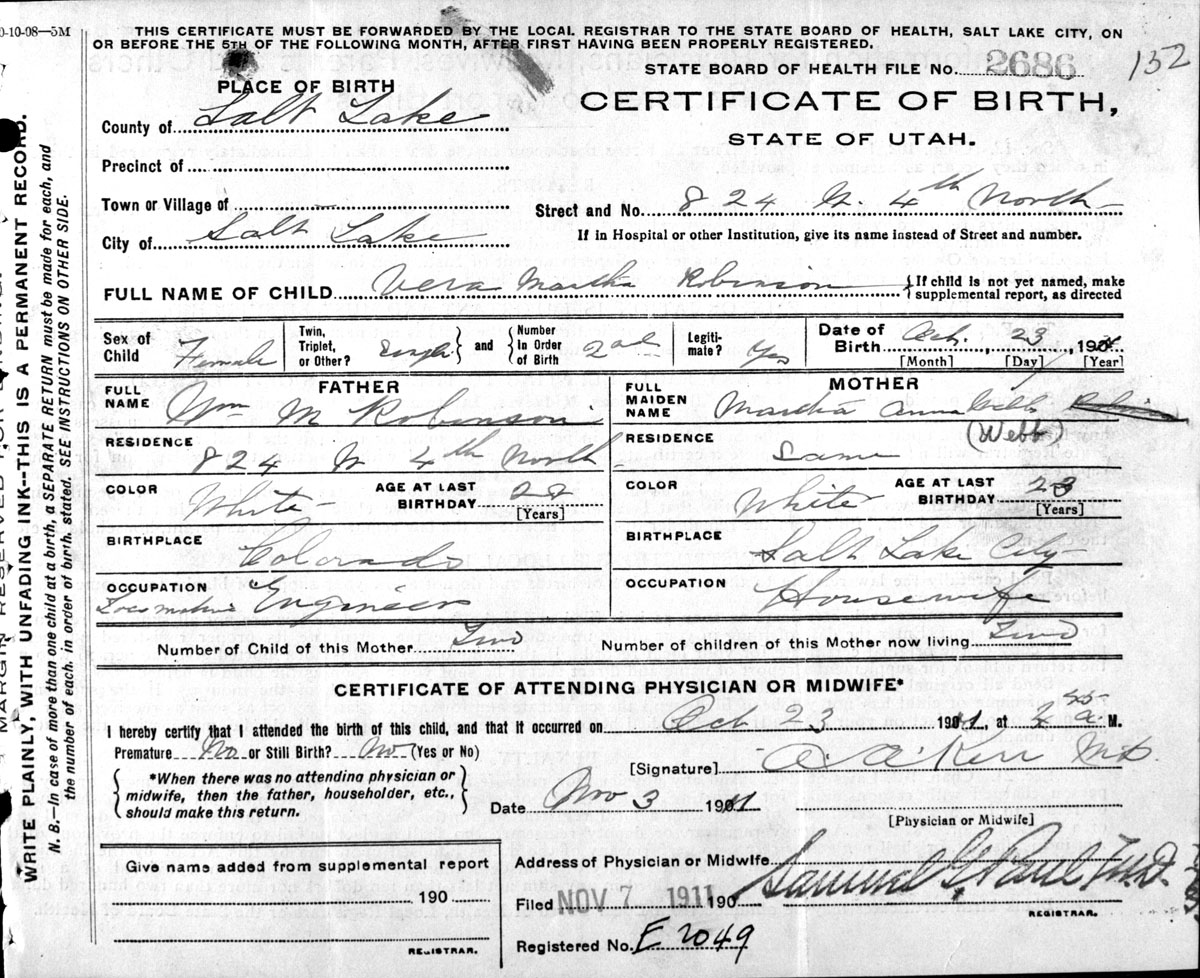 0-10-08—5M
THIS CERTIFICATE MUST BE FORWARDED BY THE LOCAL REGISTRAR TO THE STATE BOARD OF HEALTH, SALT LAKE CITY, ON
OR BEFORE THE 5TH OF THE FOLLOWING MONTH, AFTER FIRST HAVING BEEN PROPERLY REGISTERED.
STATE BOARD OF HEALTH FILE No. 2686 132
PLACE OF BIRTH
CERTIFICATE OF BIRTH,
STATE OF UTAH.
County of Salt Lake
Precinct of
Town or Village of —
Street and No. 824 W. 4th North
City of Salt Lake
If in Hospital or other Institution, give its name instead of Street and number.
FULL NAME OF CHILD Vera Martha Robinson { If child is not yet named, make supplemental report, as directed
Sex of Child Female
Twin, Triplet, or Other? Single } and { Number In Order of Birth 2nd
Legiti-mate? Yes
Date of Birth Oct. 23 190
[Month] [Day] [Year]
FATHER
FULL NAME Wm M Robinson
RESIDENCE 824 W 4th North
COLOR White AGE AT LAST BIRTHDAY 22 [Years]
BIRTHPLACE Colorado
OCCUPATION Locomotive Engineer
MOTHER
FULL MAIDEN NAME Martha Anna Webb
(Webb)
RESIDENCE Same
COLOR White AGE AT LAST BIRTHDAY 23 [Years]
BIRTHPLACE Salt Lake City
OCCUPATION Housewife
Number of Child of this Mother Two Number of children of this Mother now living Two
CERTIFICATE OF ATTENDING PHYSICIAN OR MIDWIFE*
I hereby certify that I attended the birth of this child, and that it occurred on Oct 23 1911, at M.
Premature No or Still Birth? No (Yes or No)
{ *When there was no attending physician or midwife, then the father, householder, etc., should make this return. }
[Signature] A. A. Kerr M.D.
Date Nov 3 1911
[Physician or Midwife]
Give name added from supplemental report
190
REGISTRAR.
Address of Physician or Midwife
Filed NOV 7 1911 190 Samuel G. Paul M.D.
REGISTRAR.
Registered No. E 2049
MARGIN RESERVED FOR BINDING.
WRITE PLAINLY, WITH UNFADING INK--THIS IS A PERMANENT RECORD.
N. B.—In case of more than one child at a birth, a SEPARATE RETURN must be made for each, and
the number of each, in order of birth, stated. SEE INSTRUCTIONS ON OTHER SIDE.